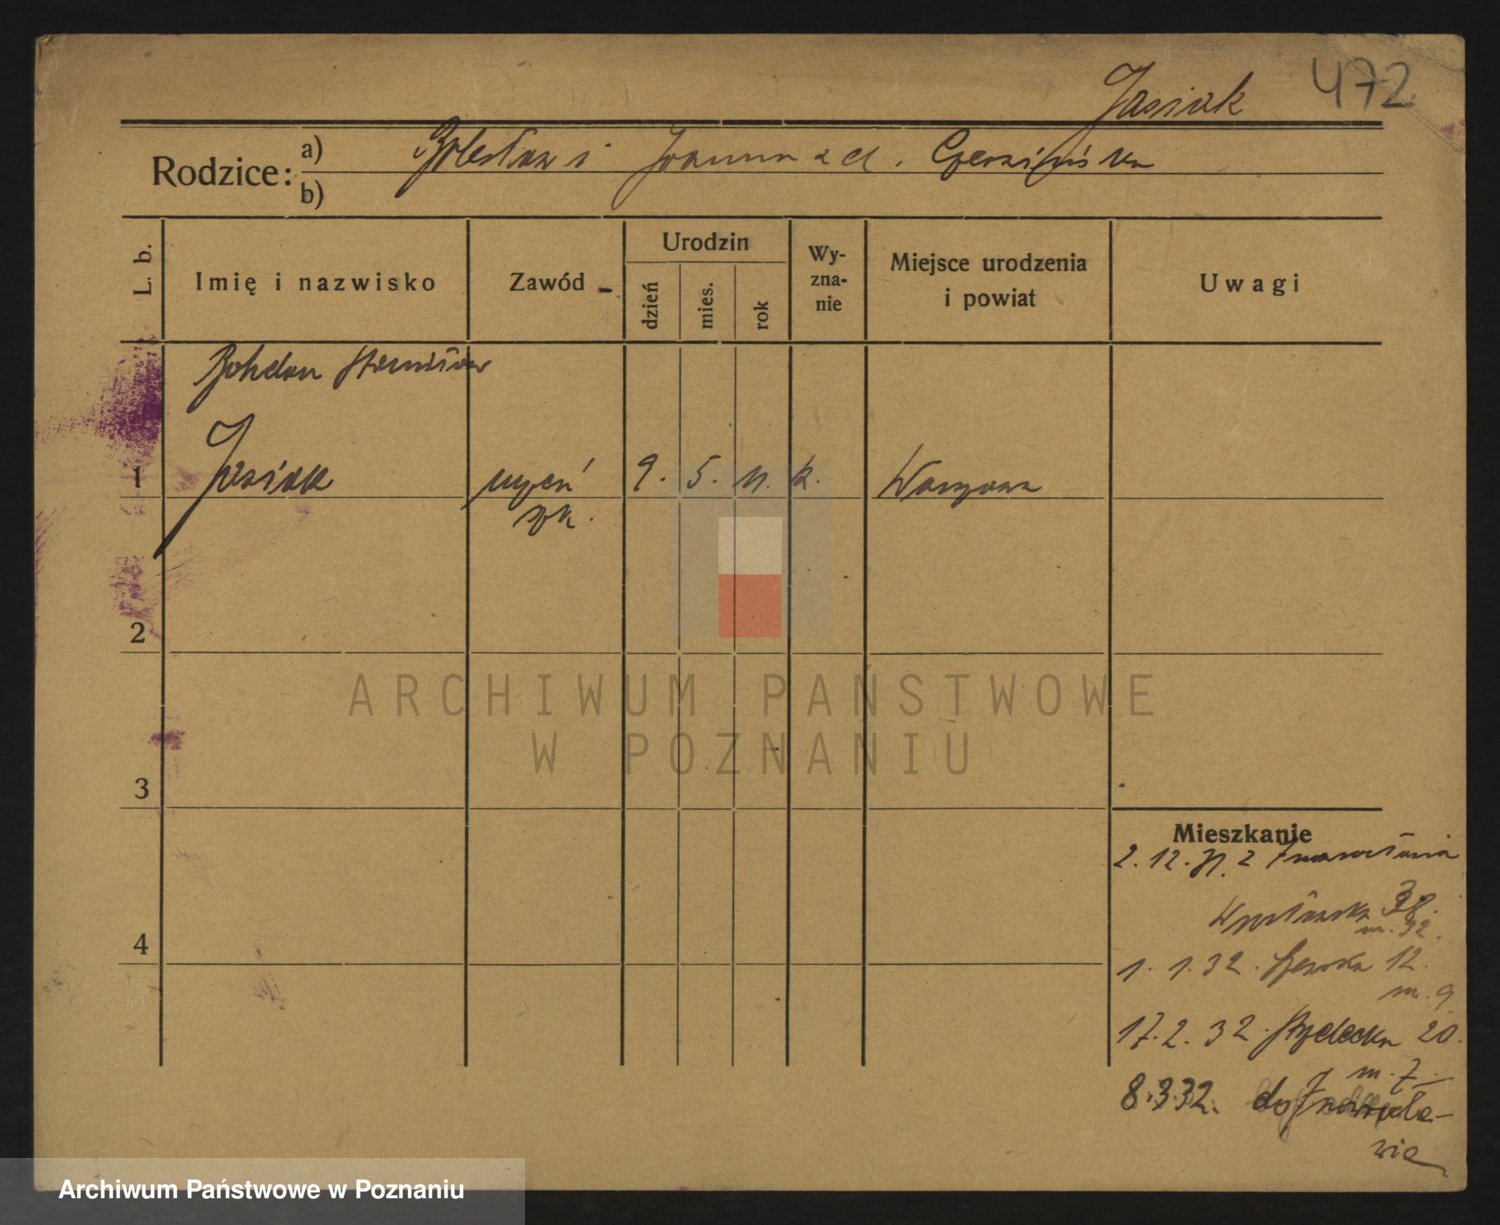 Jasiak 472
Rodzice: a) Bolesław i Joanna z d.
b)
L. b.
Imię i nazwisko
Zawód
Urodzin
dzień
mies.
rok
Wy-
zna-
nie
Miejsce urodzenia
i powiat
Uwagi
Bohdan Stanisław
1 Jasiak uczeń 9. 5. 11. k. Warszawa
2
3
4
Mieszkanie
2. 12. 31. z Inowrocławia
Wrocławska 38.
m. 32.
1. 1. 32. 12.
m. 9
17. 2. 32. 20.
m. 7.
8.3.32. do Inowrocła-
wia
ARCHIWUM PAŃSTWOWE
W POZNANIU
Archiwum Państwowe w Poznaniu